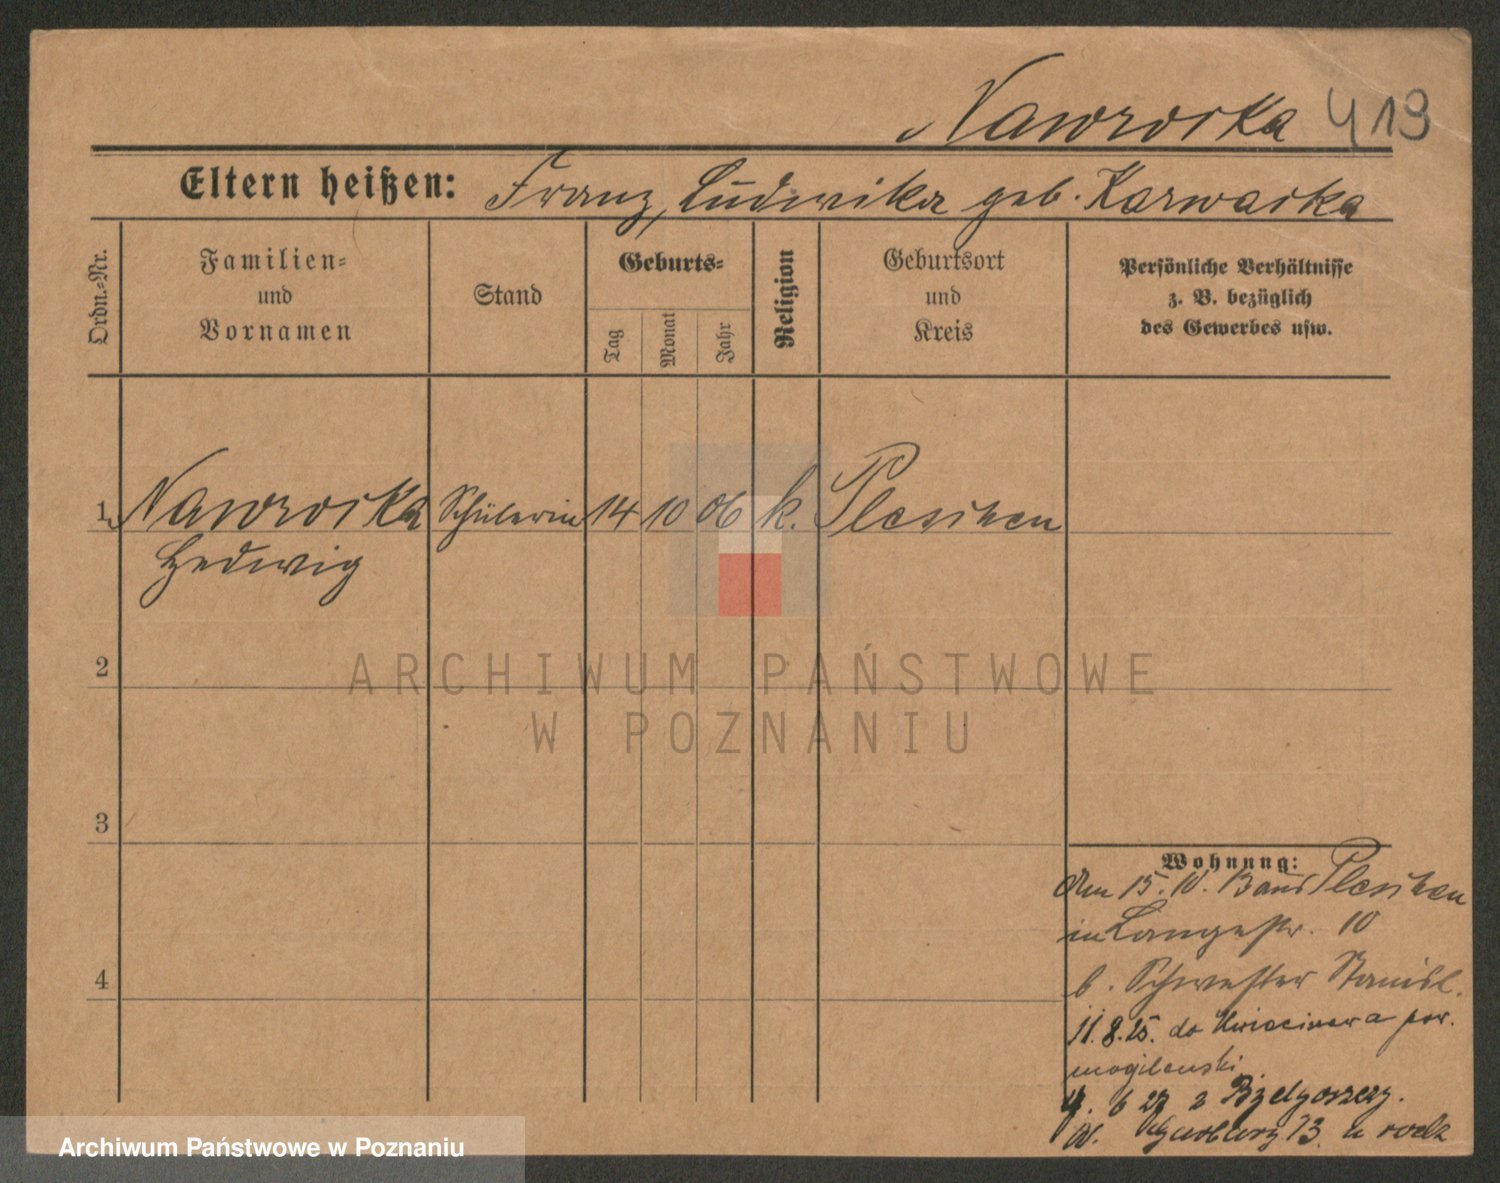 Nawrocka 419
Eltern heißen: Franz, Ludwika geb. Karwacka
Ordn.-Nr.
Familien- und Vornamen
Stand
Geburts-
Tag
Monat
Jahr
Religion
Geburtsort und Kreis
Persönliche Verhältnisse
z. B. bezüglich
des Gewerbes usw.
1 Nawrocka Schülerin 14 10 06 k. Pleschen
Hedwig
2
ARCHIWUM PAŃSTWOWE
W POZNANIU
3
4
Wohnung:
den 15. 10. 13 aus Pleschen
in Langestr. 10
b. Schwester Stanisl.
11.8.25. do pow.
mogilenski
4. 6 27 z Bydgoszczy.
13. u rodz
Archiwum Państwowe w Poznaniu